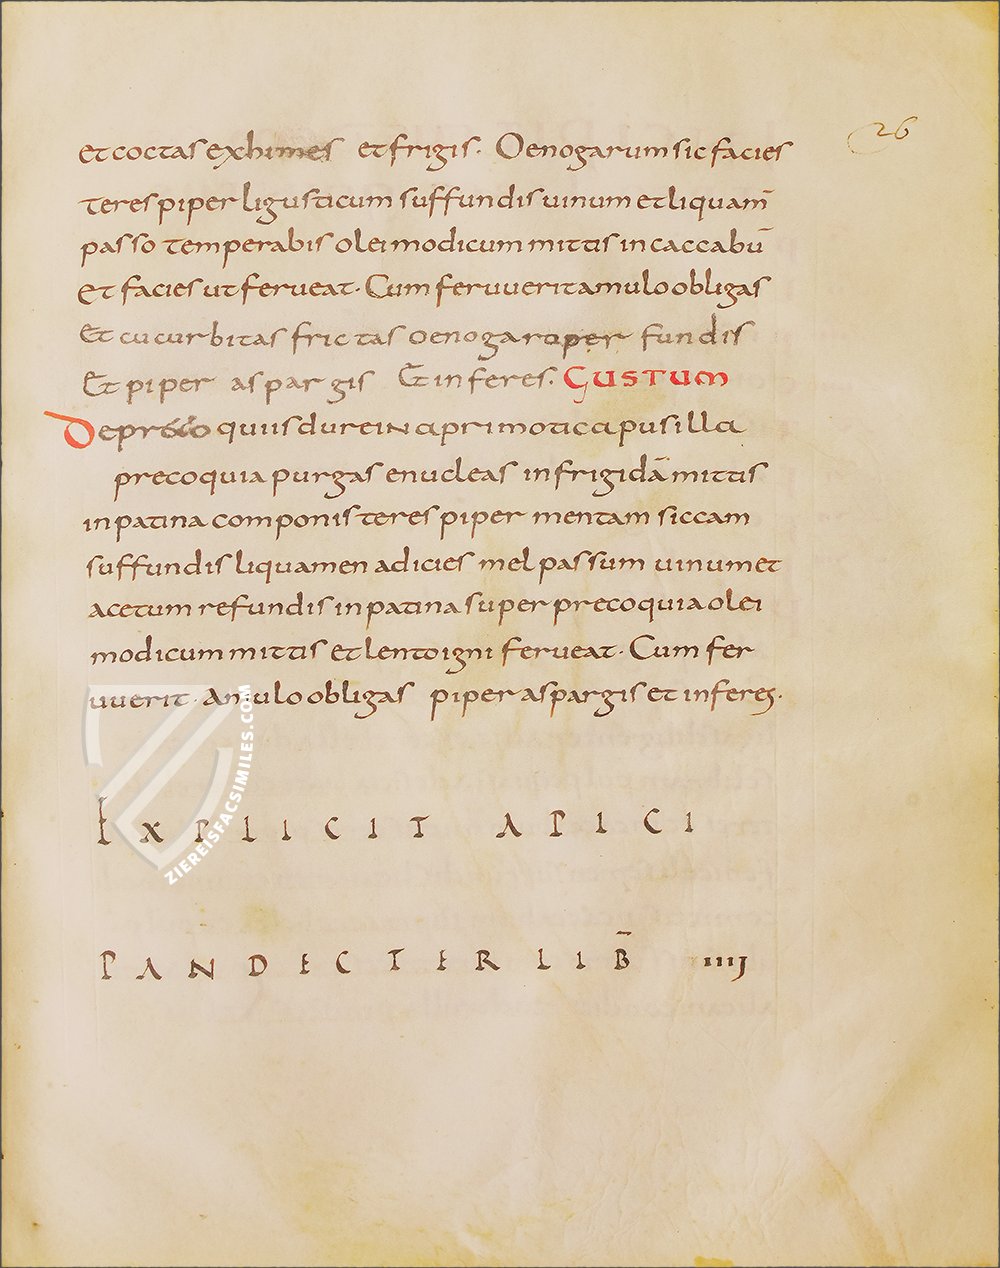 26
et coctas exhimes et frigis. Oenogarum sic facies
teres piper ligusticum suffundis uinum et liquam̄
passo temperabis olei modicum mittis in caccabū
et facies ut ferueat. Cum feruuerit amulo obligas
et cucurbitas frictas oenogaro perfundis
Et piper aspargis Et inferes. GUSTUM
De precoquiis durein aprimotica pusilla
precoquia purgas enucleas in frigidā mittis
in patina componis teres piper mentam siccam
suffundis liquamen adicies mel passum uinum et
acetum refundis in patina super precoquia olei
modicum mittis et lento igni ferueat. Cum fer
uuerit. Amulo obligas piper aspargis et inferes.
EXPLICIT APICI
PANDECTER LIB̄ IIIJ
ZIEREISFACSIMILES.COM